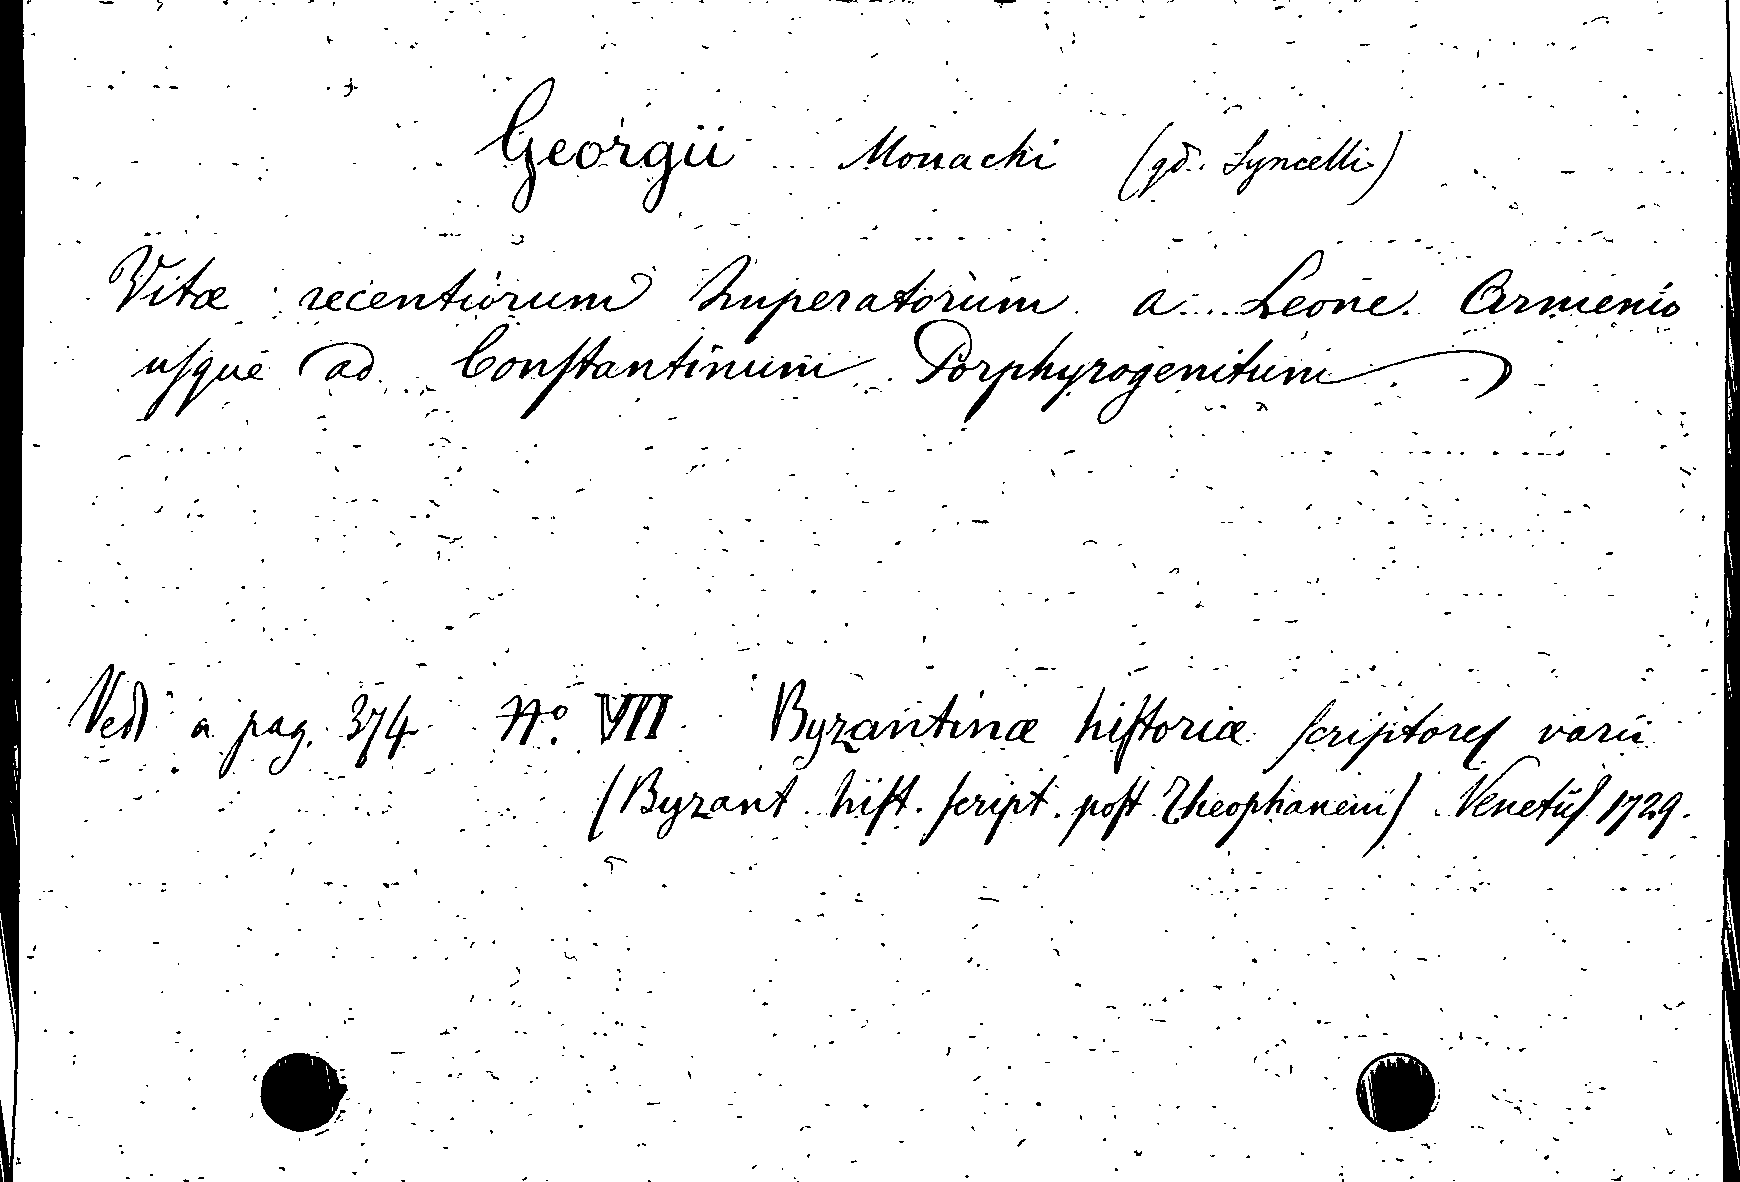 Georgii Monachi (qd. Syncelli)
Vitæ recentiorum Imperatorum a Leone Armenio
uſque ad Conſtantinum Porphyrogenitum
Vedi a pag. 374 Nº. VII Byzantinæ hiſtoriæ ſcriptoreſ varii
(Byzant. hiſt. ſcript. poſt Theophanem) Venetiiſ 1729.